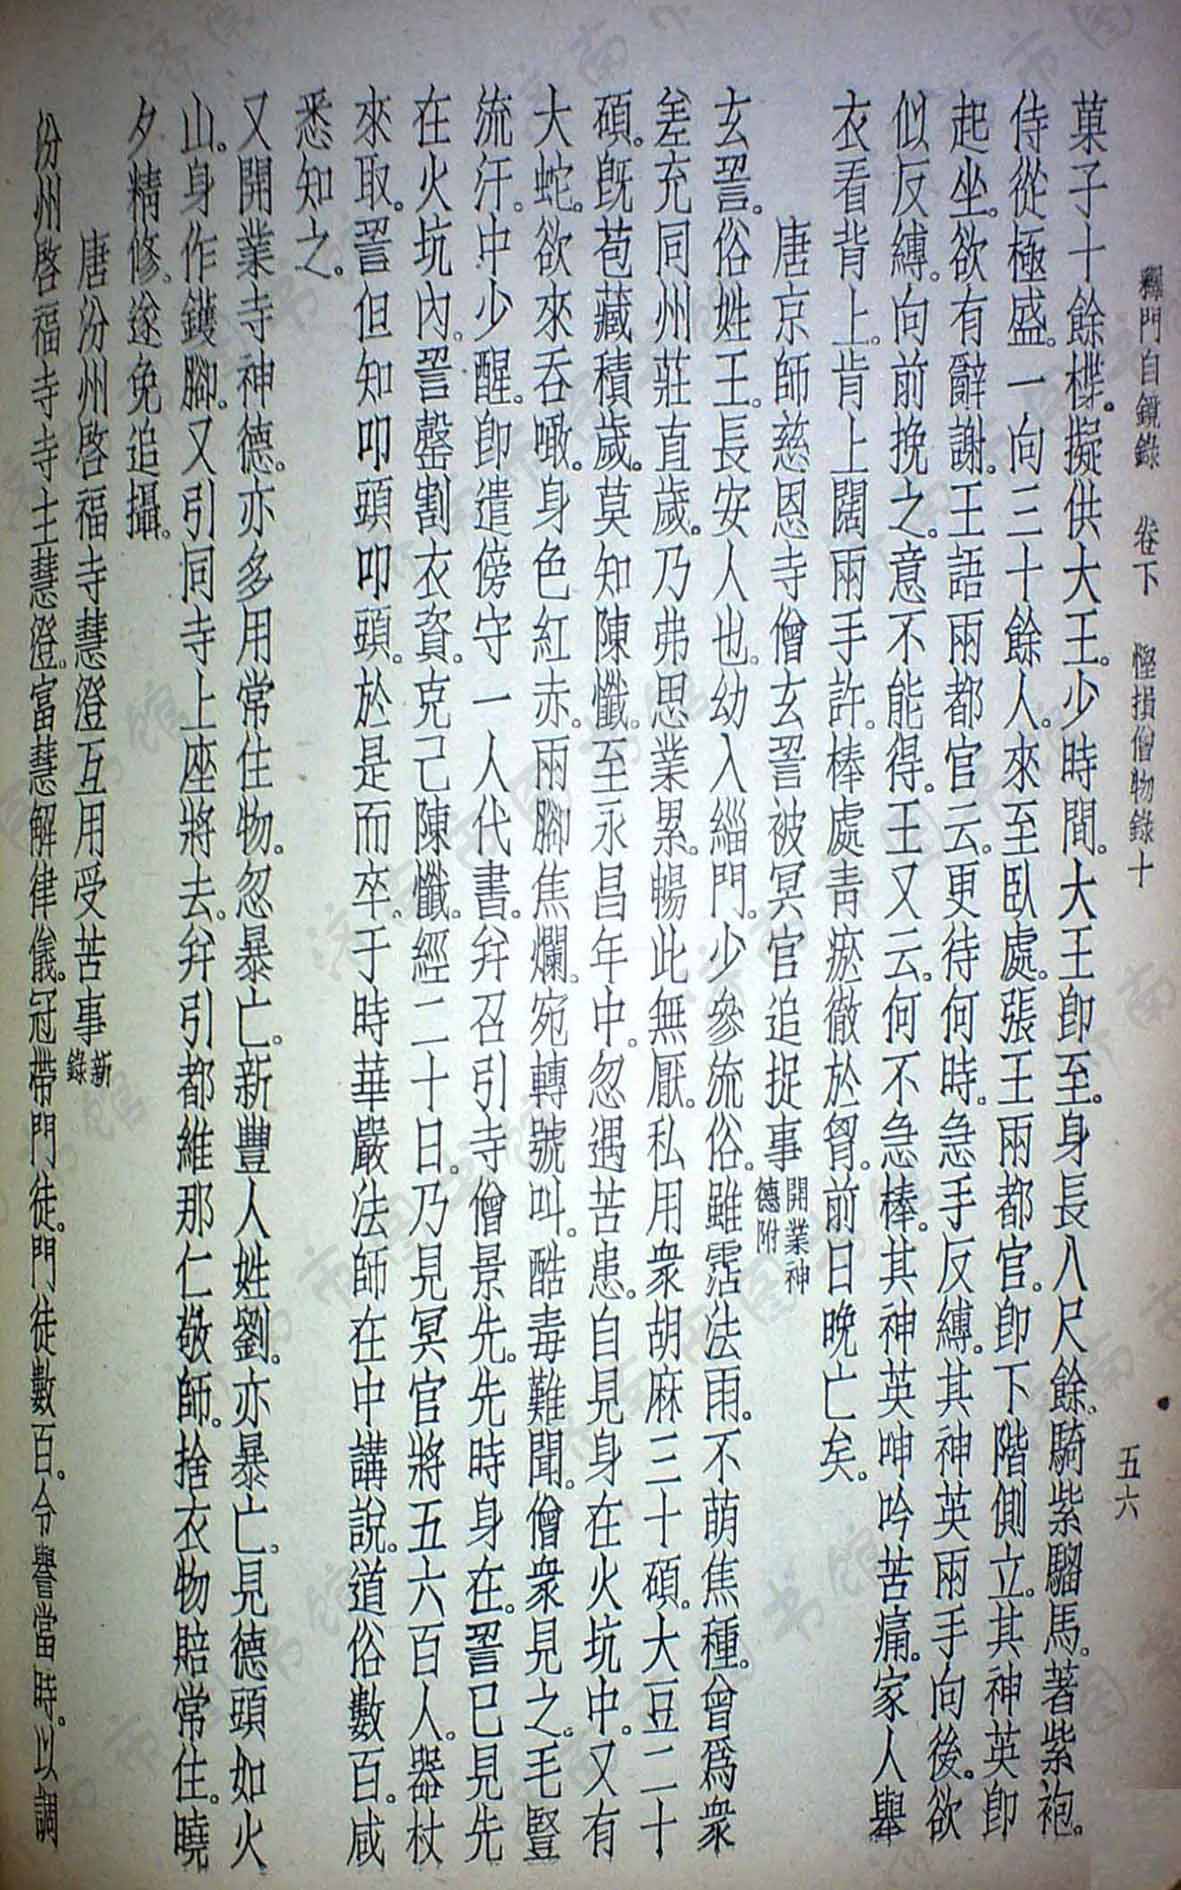 釋門自鏡錄　卷下　慳損僧物錄十　五六
菓子十餘楪。擬供大王。少時間。大王即至。身長八尺餘。騎紫騮馬。著紫袍。
侍從極盛。一向三十餘人。來至臥處。張王兩都官。即下階側立。其神英即
起坐。欲有辭謝。王語兩都官云。更待何時。急手反縛。其神英兩手向後。欲
似反縛。向前挽之。意不能得。王又云。何不急棒。其神英呻吟苦痛。家人舉
衣看背上。肯上闊兩手許。棒處青瘀徹於胷。前日晚亡矣。
唐京師慈恩寺僧玄詧被冥官追捉事開業神德附
玄詧。俗姓王。長安人也。幼入緇門。少參流俗。雖霑法雨。不萌焦種。曾爲衆
差充同州莊直歲。乃弗思業累。暢此無厭。私用衆胡麻三十碩。大豆二十
碩。旣苞藏積歲。莫知陳懺。至永昌年中。忽遇苦患。自見身在火坑中。又有
大蛇。欲來吞噉。身色紅赤。兩腳焦爛。宛轉號叫。酷毒難聞。僧衆見之。毛豎
流汗。中少醒。即遣傍守一人代書。并召引寺僧景先。先時身在。詧已見先
在火坑內。詧罄割衣資。克己陳懺。經二十日。乃見冥官將五六百人。器杖
來取。詧但知叩頭叩頭。於是而卒。于時華嚴法師在中講說。道俗數百。咸
悉知之。
又開業寺神德。亦多用常住物。忽暴亡。新豐人姓劉。亦暴亡。見德頭如火
山。身作鑊腳。又引同寺上座將去。并引都維那仁敬師。捨衣物賠常住。曉
夕精修。遂免追攝。
唐汾州啓福寺慧澄互用受苦事新錄
汾州啓福寺寺主慧澄。富慧解律儀。冠帶門徒。門徒數百。令譽當時。以調